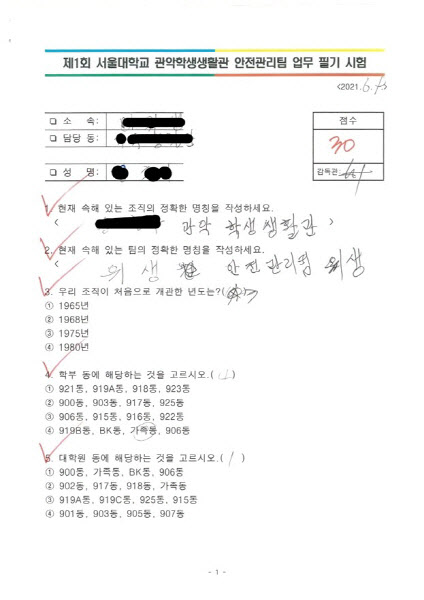 제1회 서울대학교 관악학생생활관 안전관리팀 업무 필기 시험
<2021. 6. 9>
□ 소 속:
□ 담당 동:
□ 성 명:
점수
30
감독관:
1. 현재 속해 있는 조직의 정확한 명칭을 작성하세요.
< 관악 학생생활관 >
2. 현재 속해 있는 팀의 정확한 명칭을 작성하세요.
< 위생 안전관리팀 위생
3. 우리 조직이 처음으로 개관한 년도는?( )
① 1965년
② 1968년
③ 1975년
④ 1980년
4. 학부 동에 해당하는 것을 고르시오.( )
① 921동, 919A동, 918동, 923동
② 900동, 903동, 917동, 925동
③ 906동, 915동, 916동, 922동
④ 919B동, BK동, 가족동, 906동
5. 대학원 동에 해당하는 것을 고르시오.( 1 )
① 900동, 가족동, BK동, 906동
② 902동, 917동, 918동, 가족동
③ 919A동, 919C동, 925동, 915동
④ 901동, 903동, 905동, 907동
- 1 -